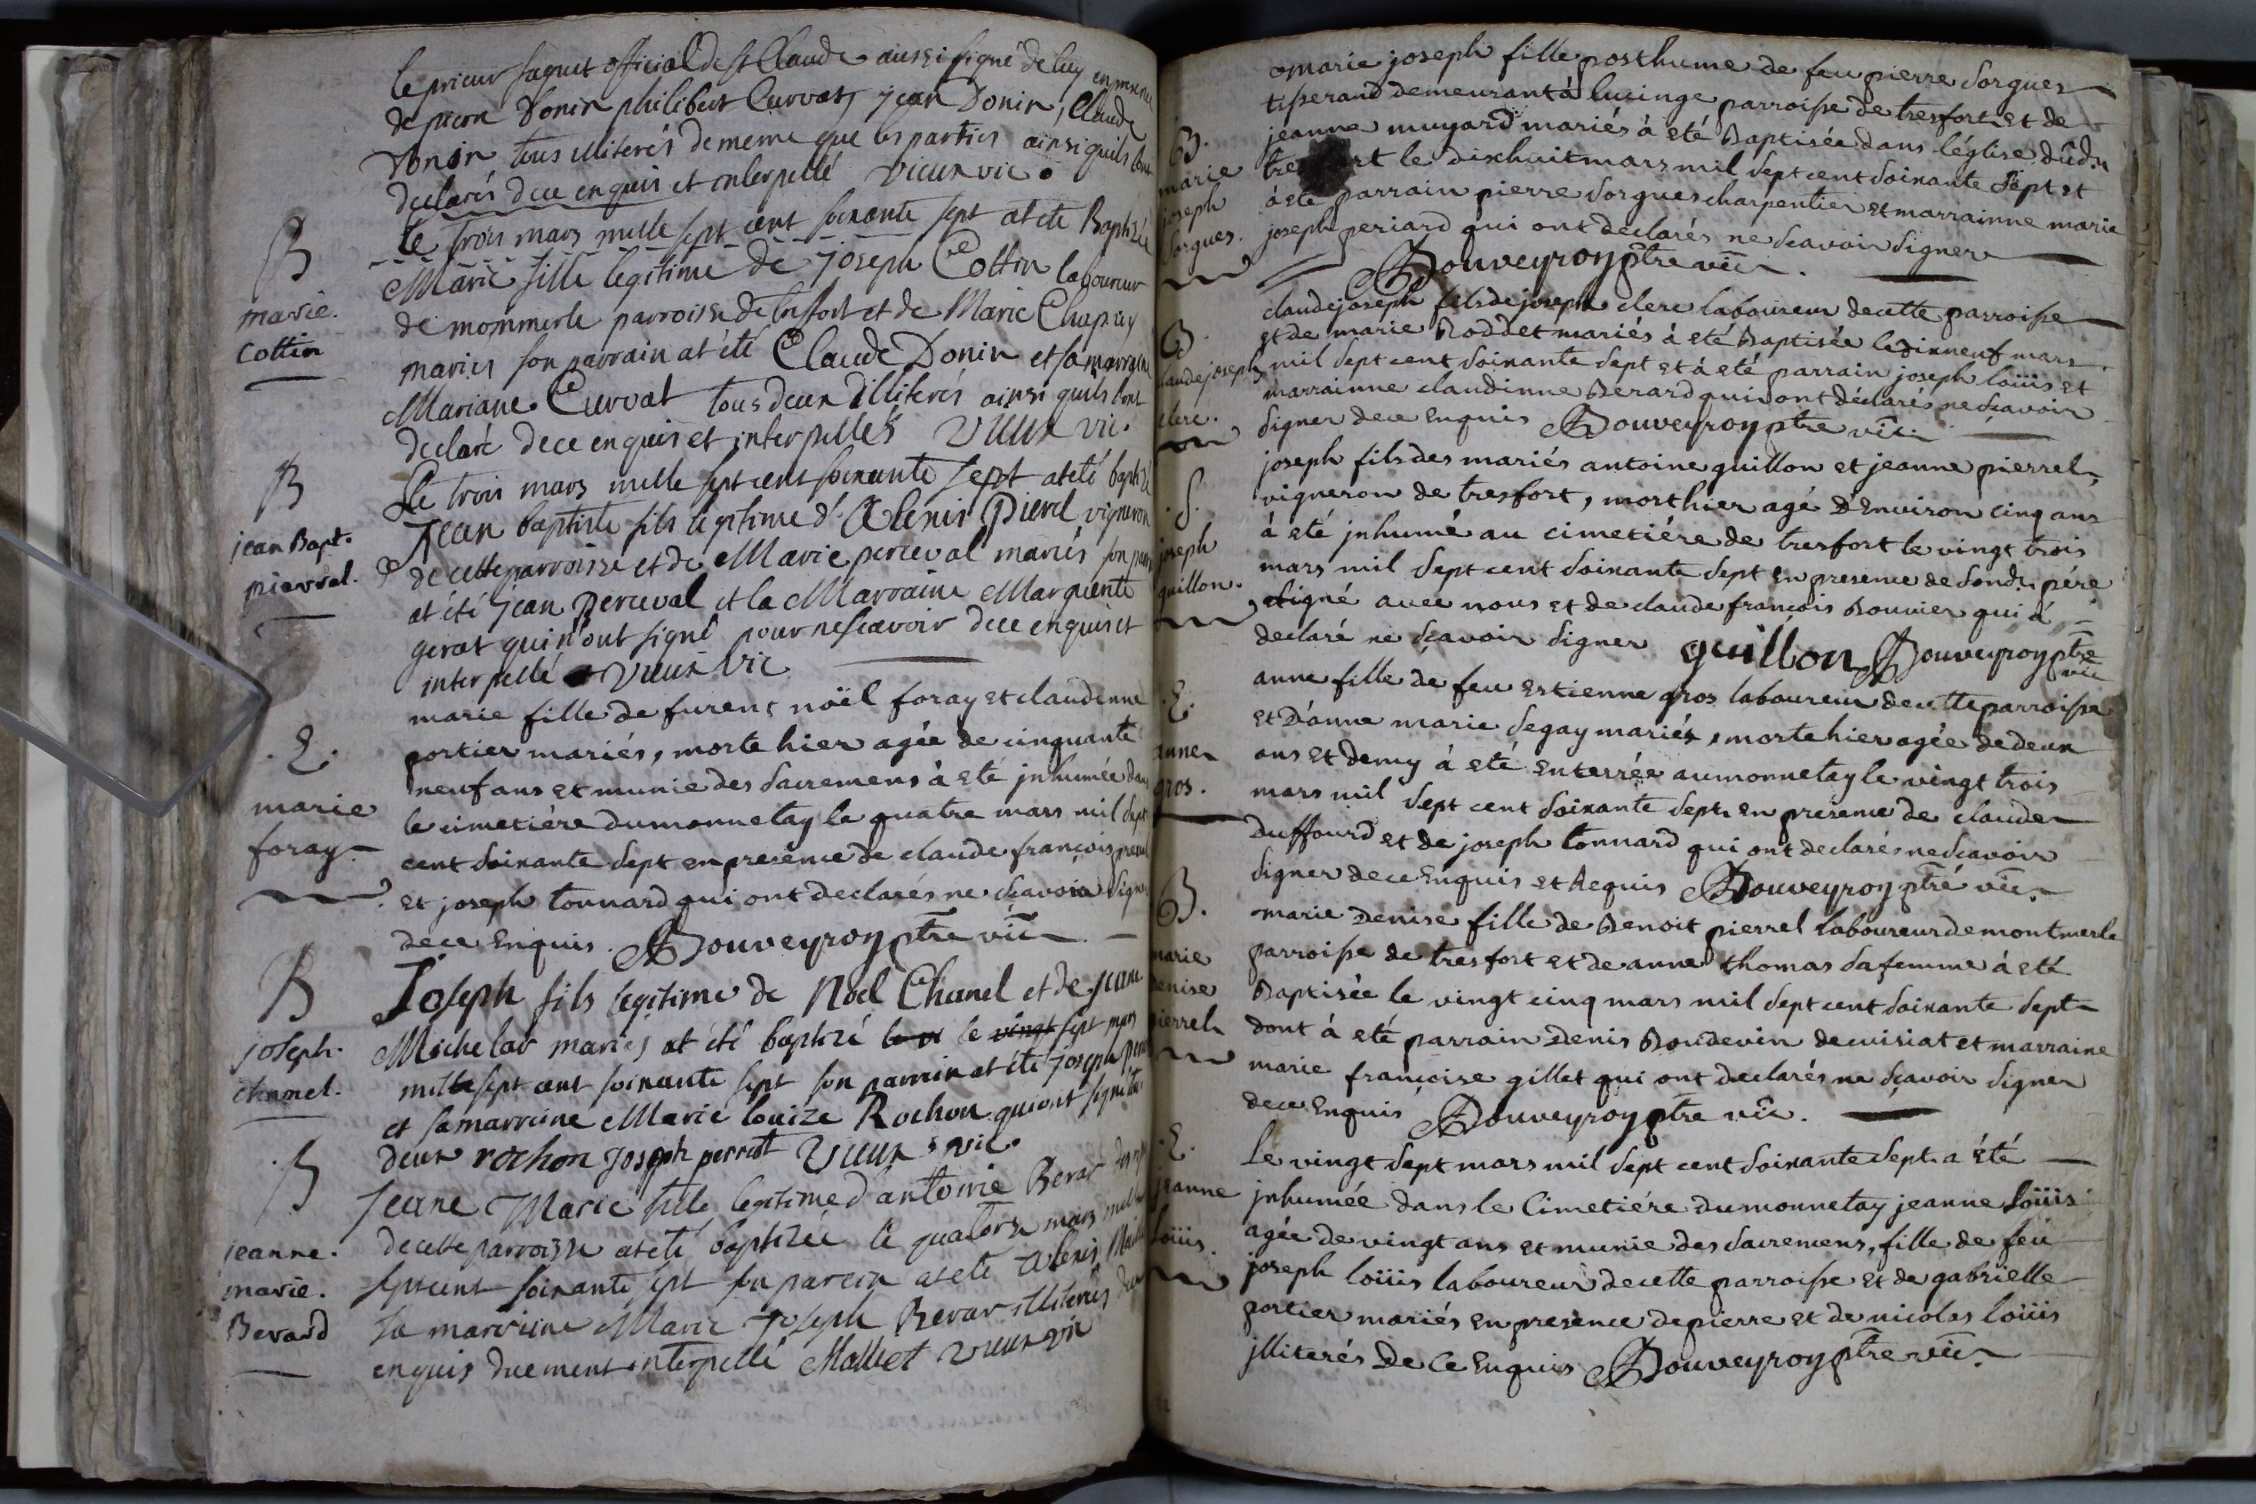 le prieur saquet official de st Claude aussi signé de luy en presence
de pierre Donin philibert Curvat, jean Donin, Claude
Donin tous illiterés de meme que les parties ainsi quils l'ont
declarés dece enquis et interpellé vieux vic
B
marie.
Cottin
Le trois mars mille sept cent soixante sept at ete Baptizée
Marie fille legitime de Joseph Cottin laboureur
de mommerle parroisse de tresfort et de Marie Chapuy
mariés son parrain at été Claude Donin et sa marraine
Mariane Curvat tous deux illiterés ainsi quils l'ont
declaré dece enquis et interpellés vieux vic.
B
jean Bapt.
pierrel.
Le trois mars mille sept cent soixante sept at eté baptizé
Jean baptiste fils legitime d'Alexis Pierel vigneron
de cette parroisse et de Marie perceval mariés son parrain
at été jean Perceval et la Marraine Marguerite
gerat qui n'ont signé pour ne scavoir dece enquis et
interpellé vieux vic
.E.
marie
foray
marie fille de furent noël foray et claudinne
portier mariés, morte hier agée de cinquante
neuf ans et munie des sacremens à eté jnhumée dans
le cimetiére du monnetay le quatre mars mil sept
cent soixante sept en presence de claude françois
et joseph tonnard qui ont declarés ne sçavoir signer
dece Enquis. Bouveyron ptre vic
B
joseph.
chanel.
Joseph fils legitime de Noel Chanel et de jeane
Michelar mariés at été baptizé le vi le vingt sept mars
mille sept cent soixante sept son parrain at été joseph perrot
et sa marraine Marie louize Rochon qui ont signé tous
deux rochon Joseph perrot Vieux vic.
B
jeanne.
marie.
Berard
Jeane Marie fille legitime d'antoine Berar
de cette parroisse at eté baptizée le quatorze mars mille
sept cent soixante sept son parain at eté Alexis
sa marraine Marie Joseph Berar illiterés
enquis duement interpellé Mallet vieux vic
B.
marie
joseph
sorgues.
marie joseph fille posthume de feu pierre sorgues
tisserand demeurant à lucinge parroisse de tresfort et de
jeanne muyard mariés à eté Baptisée dans l'église dud.
tresfort le dixhuit mars mil sept cent soixante sept et
à eté parrain pierre sorgues charpentier et marrainne marie
joseph periard qui ont declarés ne sçavoir signer
Bouveyron ptre vic.
B.
claude joseph
clerc.
claude joseph fils de joseph clerc laboureur de cette parroisse
et de marie Roddet mariés à eté Baptisée le dixneuf mars
mil sept cent soixante sept et à eté parrain joseph loüis et
marrainne claudinne Berard qui ont déclarés ne sçavoir
signer dece Enquis Bouveyron ptre vic.
.S.
joseph
guillon.
joseph fils des mariés antoine guillon et jeanne pierrel,
vigneron de tresfort, mort hier agé D'Environ cinq ans
à eté jnhumé au cimetiére de tresfort le vingt trois
mars mil sept cent soixante sept en presence de sond. pére
signé avec nous et de claude françois Bouvier qui à
declaré ne sçavoir signer guillon Bouveyron ptre
vic
.E.
anne
gros.
anne fille de feu Estienne gros laboureur de cette parroisse
et D'anne marie segay mariés, morte hier agée de deux
ans et demy à eté Enterrée au monnetay le vingt trois
mars mil sept cent soixante sept en presence de claude
Duffourd et de joseph tonnard qui ont declarés ne sçavoir
signer dece Enquis et Requis Bouveyron ptré vic.
B.
marie
Denise
pierrel
marie Denise fille de Benoit pierrel laboureur de montmerle
parroisse de tresfort et de anne thomas sa femme à eté
Baptisée le vingt cinq mars mil sept cent soixante sept
dont à eté parrain Denis Boudevin de cuisiat et marraine
marie françoise gillet qui ont declarés ne sçavoir signer
dece Enquis Bouveyron ptre vic.
.E.
jeanne
loüis.
Le vingt sept mars mil sept cent soixante sept a été
jnhumée dans le Cimetiére du monnetay jeanne loüis
agée de vingt ans et munie des sacremens, fille de feu
joseph loüis laboureur de cette parroisse et de gabrielle
portier mariés en presence de pierre et de nicolas loüis
jlliterés De Ce Enquis Bouveyron ptre vic.